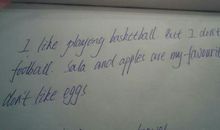 I like playing basketball. But I don't
football. Sala and apples are my favourit
don't like eggs